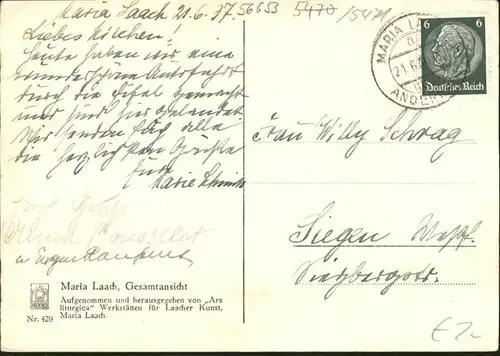 Maria Laach 21.6.37. 56653 5470 /5471
Liebes Kätchen!
Heute haben wir eine
wunderschöne Autofahrt
durch die Eifel gemacht
und sind hier gelandet.
Wir senden Euch alle
die herzlichsten Grüße
Eure
Marie
MARIA LA
21.6.
ANDER
6 6
Deutsches Reich
Frau Willy Schrag
Siegen Westf.
Maria Laach, Gesamtansicht
Aufgenommen und herausgegeben von „Ars
liturgica" Werkstätten für Laacher Kunst,
Maria Laach
Nr. 429
£2-